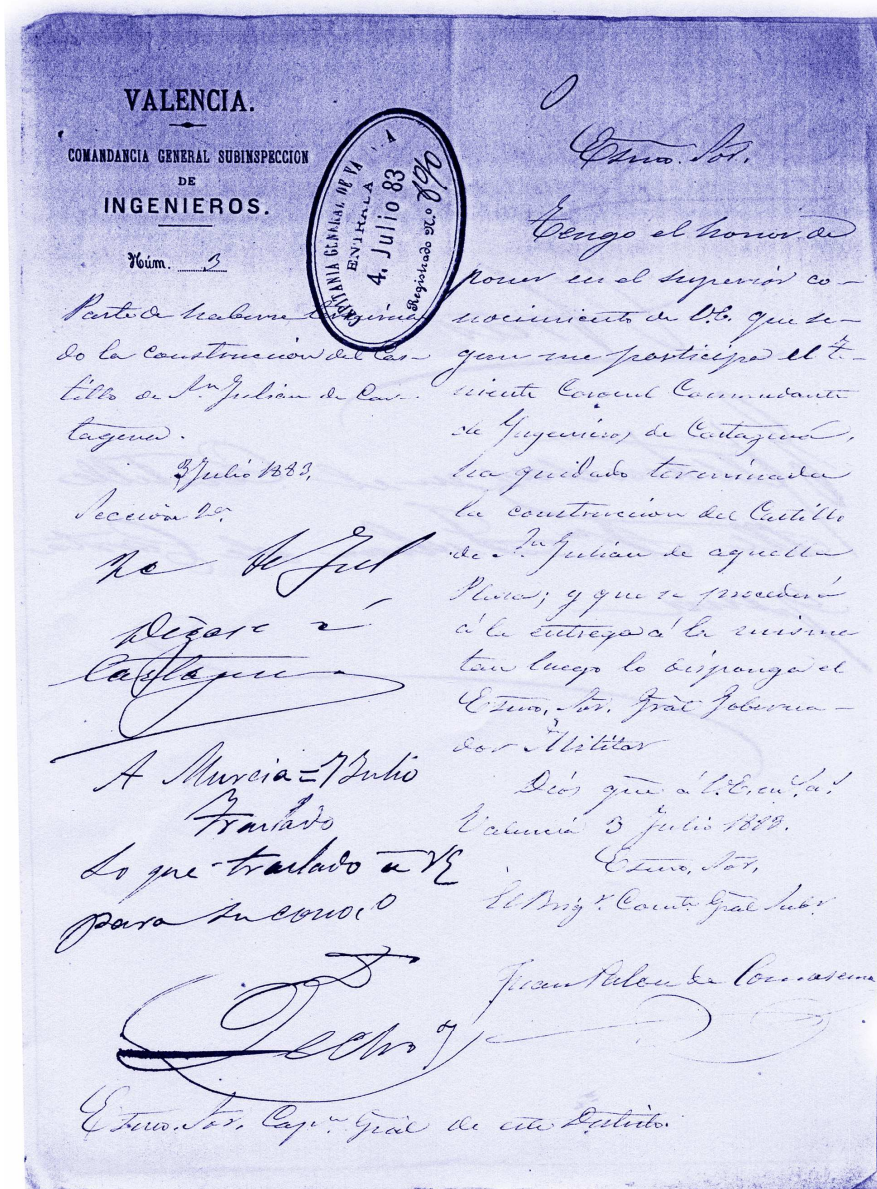 VALENCIA.
COMANDANCIA GENERAL SUBINSPECCION
DE
INGENIEROS.
Núm. 3
CAPITANIA GENERAL DE VA A
ENTRALA
4. Julio 83
Registrado Nº
Parte de haberse termina
do la construcción del Cas-
tillo de Sn. Julián de Car-
tagena.
3 Julio 1883.
Sección 2ª
de Jul
Dígase á
Cartagena
A Murcia = 7 Julio
Traslado
Lo que traslado a VE
para su conoc.o
Fecho
Exmo. Sor.
Tengo el honor de
poner en el superior co-
nocimiento de V.E. que se-
gun me participa el Te-
niente Coronel Comandante
de Ingenieros de Cartagena,
ha quedado terminada
la construcción del Castillo
de Sn. Julián de aquella
Plaza; y que se procederá
á la entrega á la misma
tan luego lo disponga el
Exmo. Sor. Gral Goberna-
dor Militar
Dios gue á V.E. m.s a.s
Valencia 3 Julio 1883.
Exmo. Sor.
El Brigr. Comte. Gral Subr.
Juan Palou de Comasema
Exmo. Sor. Capn. Gral de este Distrito.